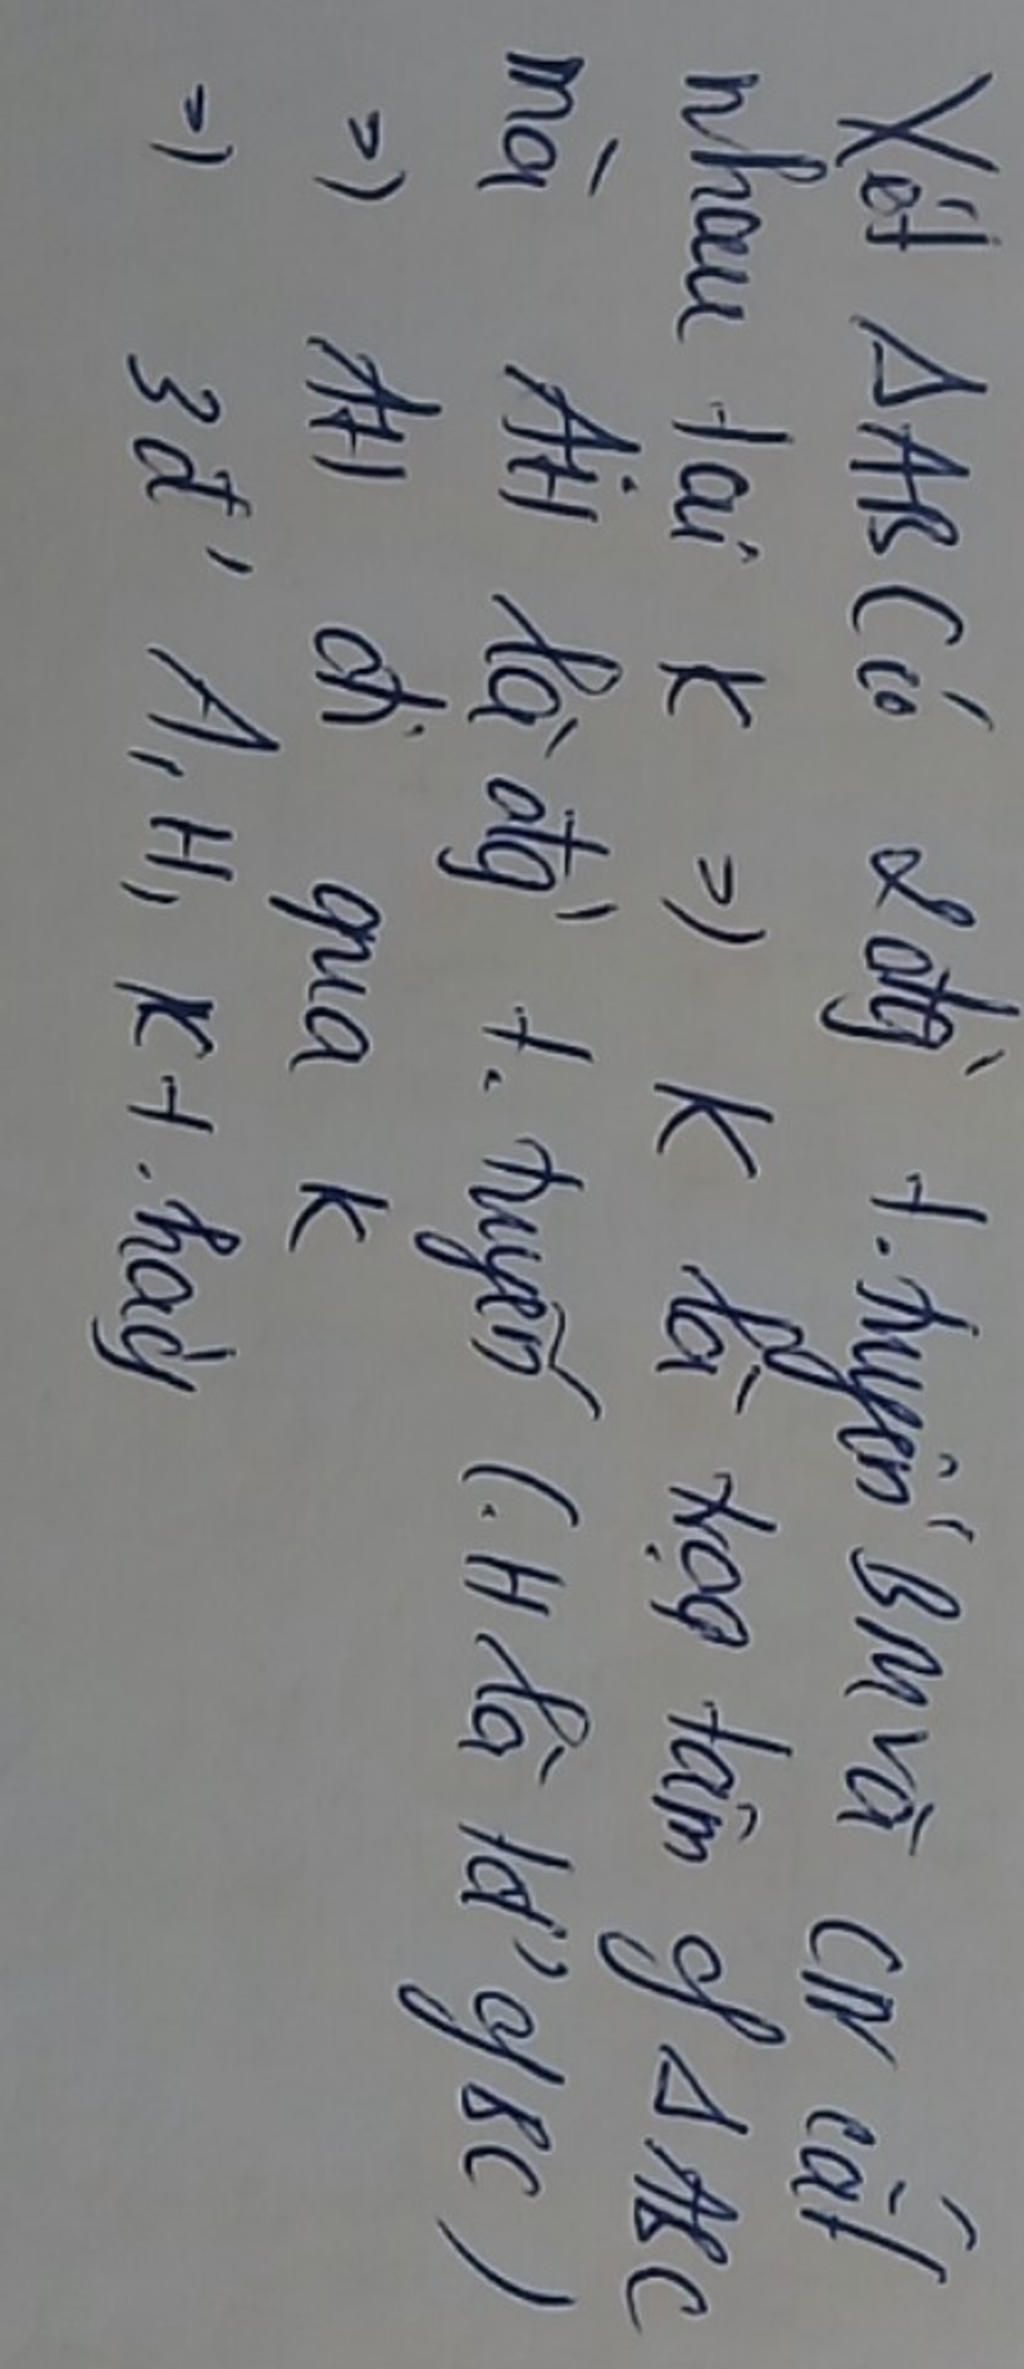 Xét Δ ABC có 2 đtg' t. tuyến BM và CN cắt
nhau tại K => K là trọg tâm of Δ ABC
mà AH là đtg' t. tuyến (. H là tđ' of BC )
=> AH đi qua K
=> 3đ' A, H, K t. hàg